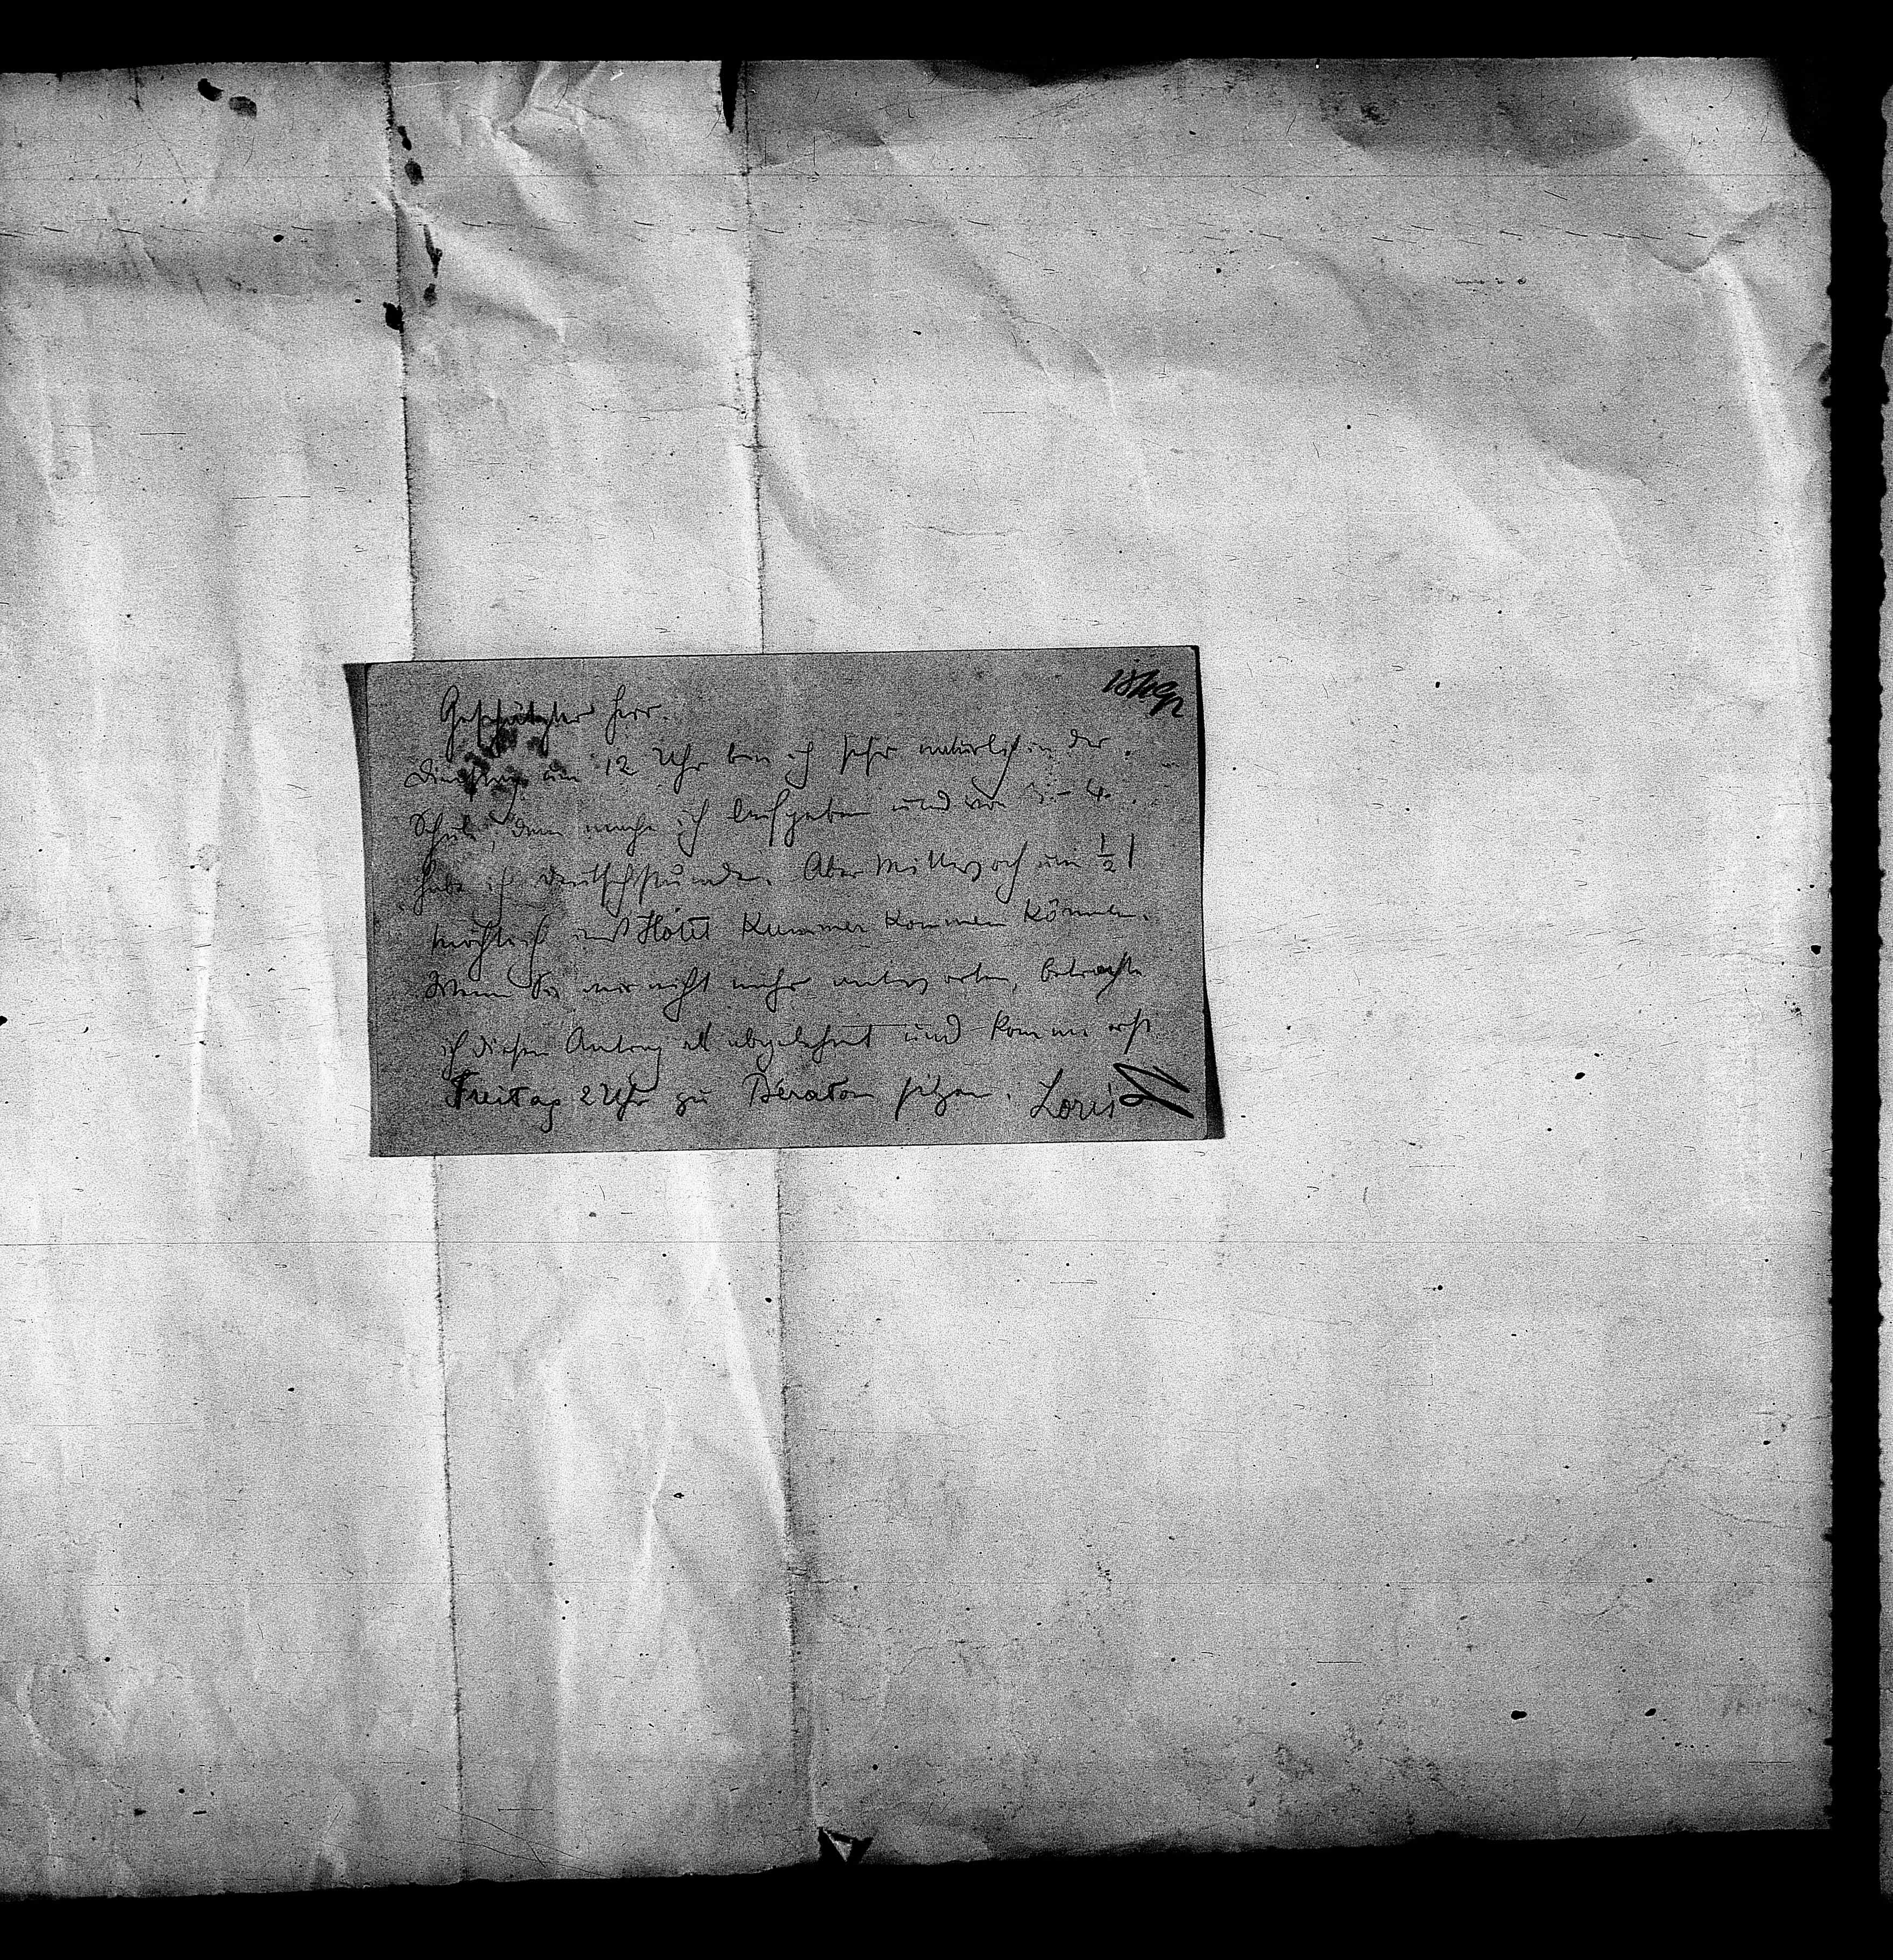 Geschätzter Herr.
Dienstag um 12 Uhr bin ich sehr natürlich in der
Schule, dann mache ich Aufgaben und von 3–4
habe ich Deutschstunde. Aber Mittwoch um ½ 1
möchte ich ins Hôtel Kummer kommen können.
Wenn Sie mir nicht mehr antworten, betrachte
ich diesen Antrag als abgelehnt und komme erst
Freitag 2 Uhr zu Bératon sitzen. Loris